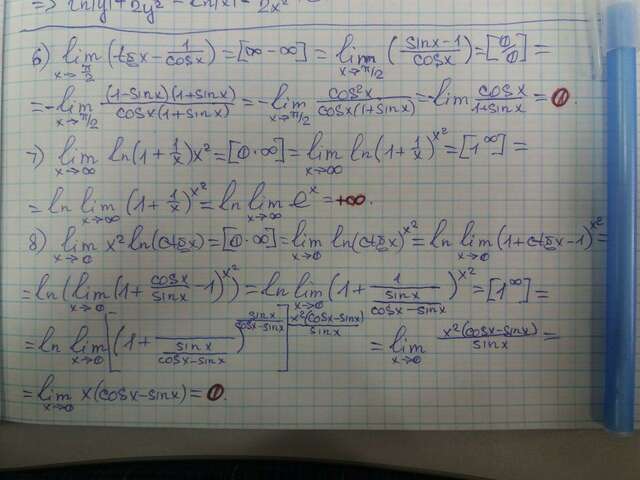 => ln|y| + 2y² - ln|x| - 2x²
6) lim x→π/2 (tgx - 1/cosx) = [∞ - ∞] = lim x→π/2 ((sinx-1)/cosx) = [0/0] =
= -lim x→π/2 (1-sinx)(1+sinx)/cosx(1+sinx) = -lim x→π/2 cos²x/cosx(1+sinx) = -lim cosx/1+sinx = 0.
7) lim x→∞ ln(1+1/x)x² = [0·∞] = lim x→∞ ln(1+1/x)^x² = [1^∞] =
= ln lim x→∞ (1+1/x)^x² = ln lim x→∞ e^x = +∞.
8) lim x→0 x² ln(ctgx) = [0·∞] = lim x→0 ln(ctgx)^x² = ln lim x→0 (1+ctgx-1)^x² =
= ln(lim x→0 (1+cosx/sinx -1)^x²) = ln lim x→0 (1+ 1/(sinx/(cosx-sinx)))^x² = [1^∞] =
= ln lim x→0 [(1+ 1/(sinx/(cosx-sinx)))^(sinx/(cosx-sinx))]^(x²(cosx-sinx)/sinx) = lim x→0 x²(cosx-sinx)/sinx =
= lim x→0 x(cosx-sinx) = 0.